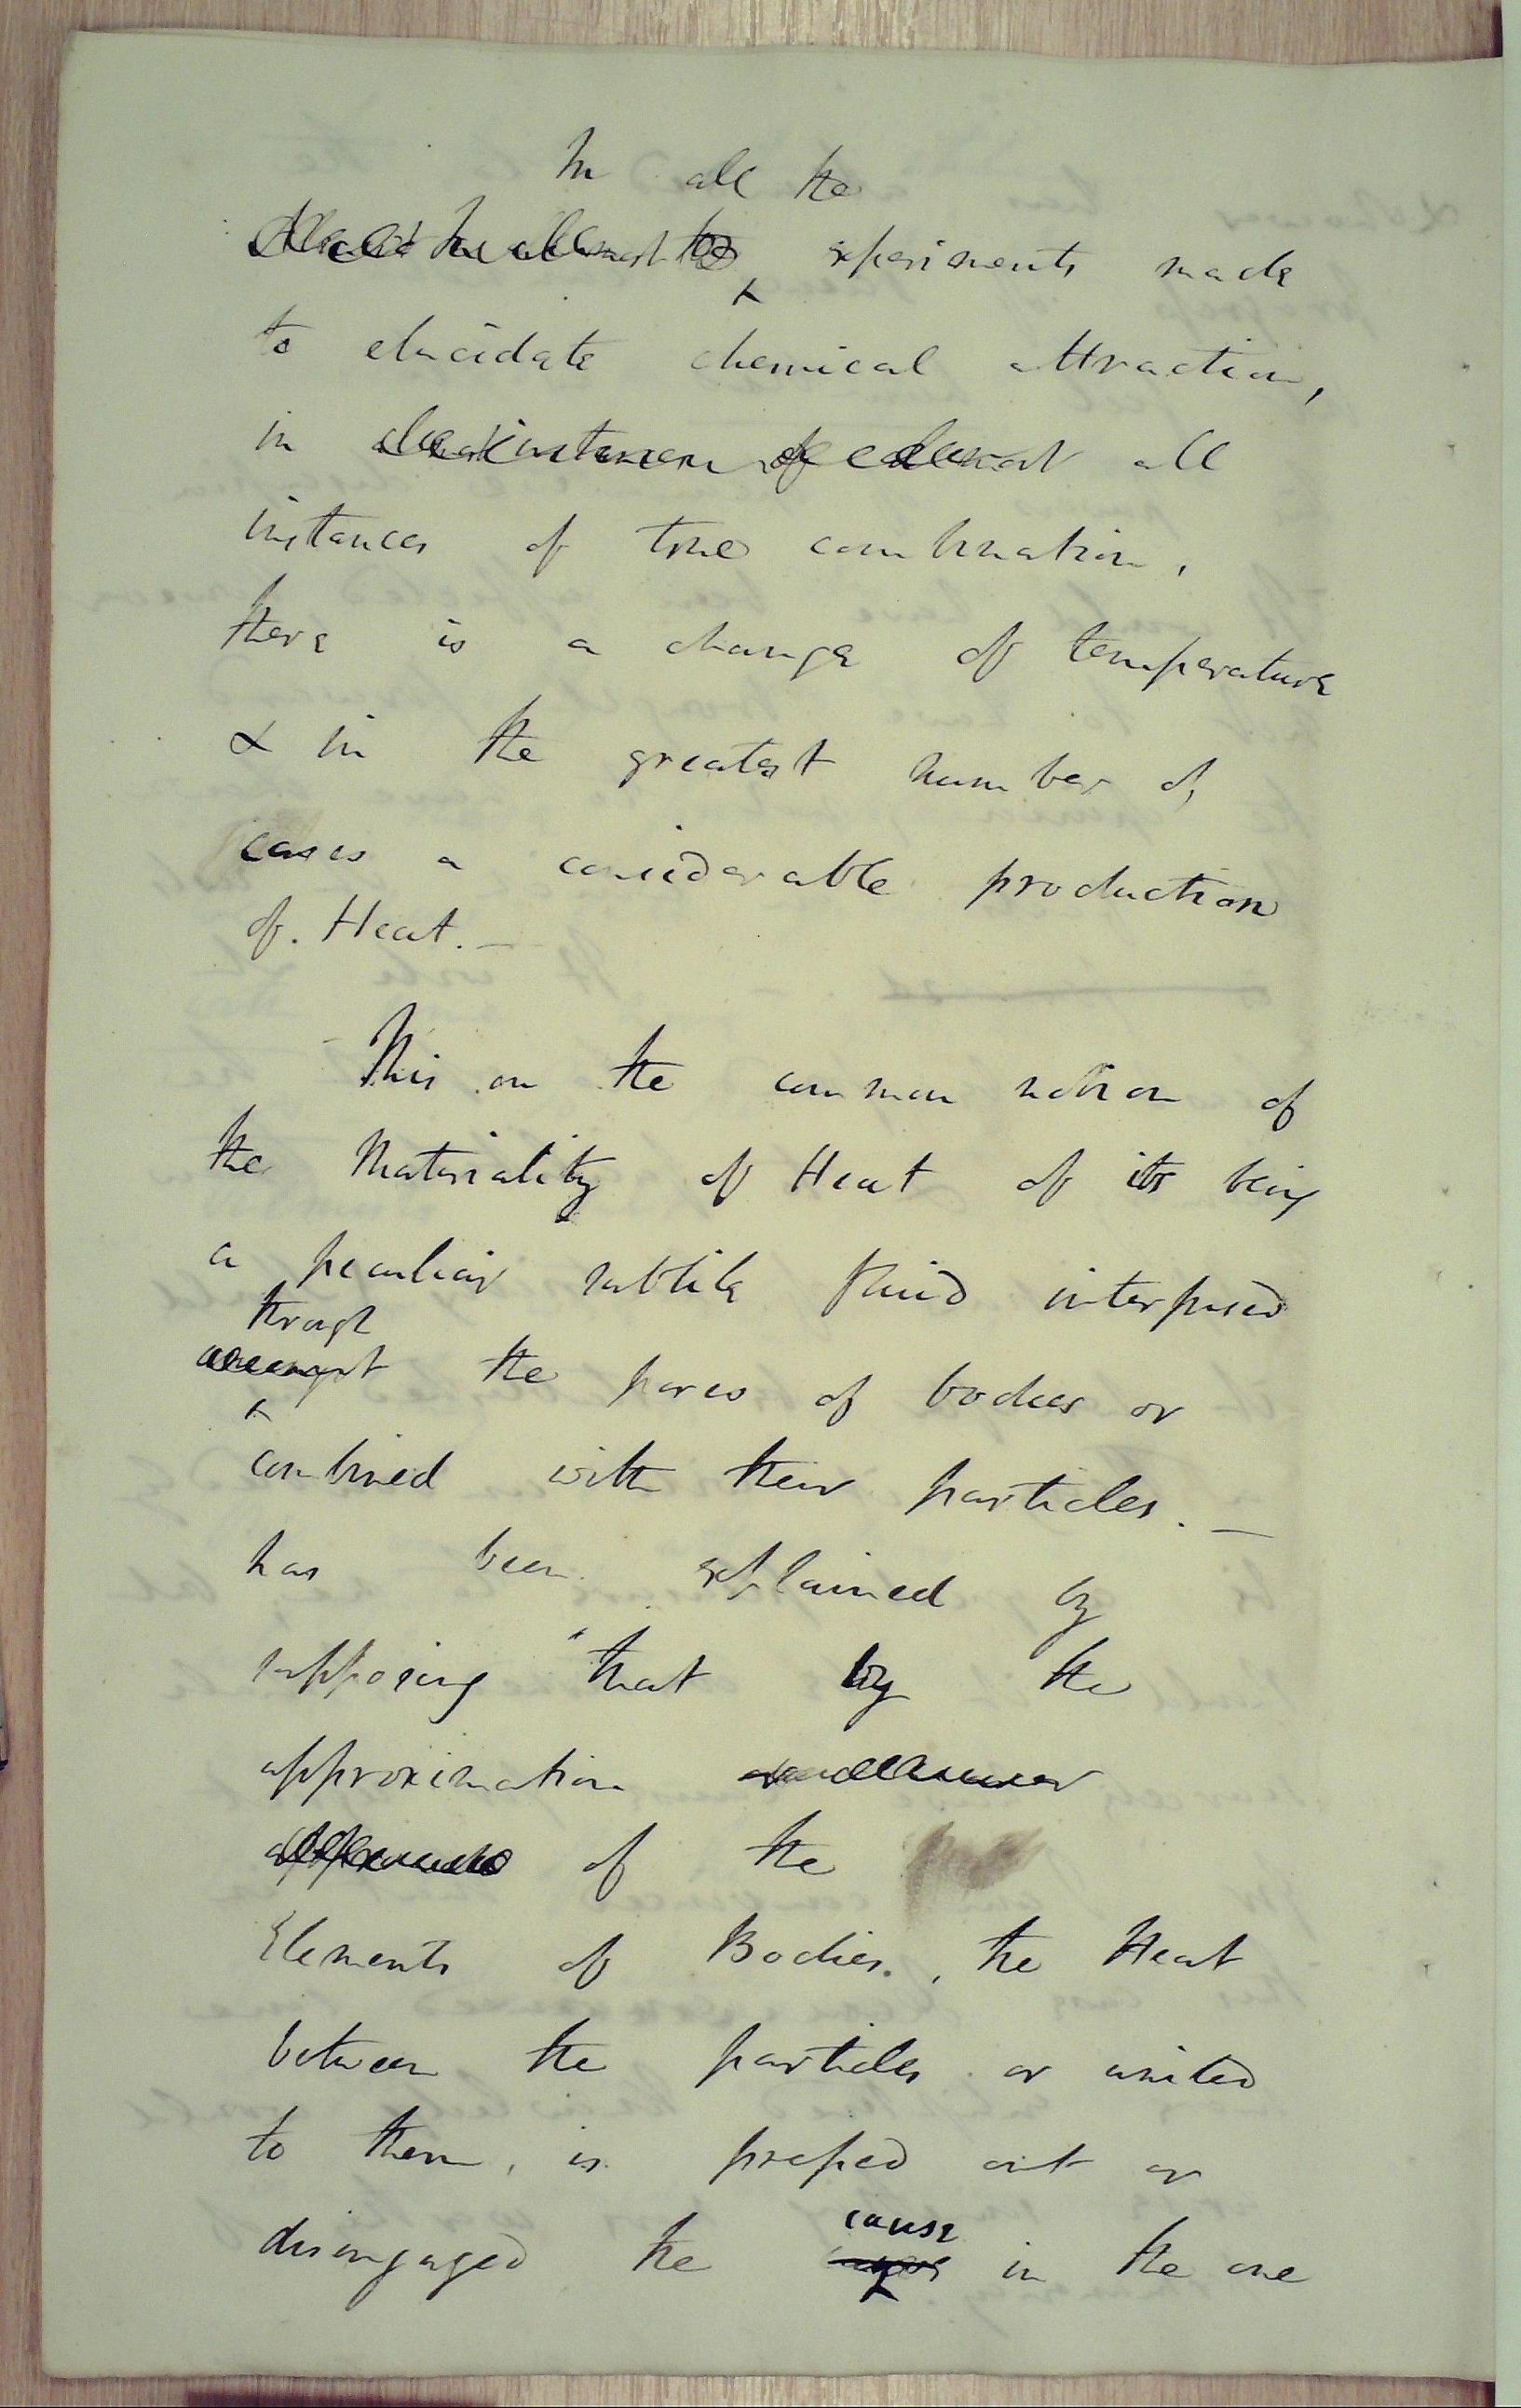 In all the
experiments made
to elucidate chemical attraction,
in all
instances of true combination,
there is a change of temperature
& in the greatest number of
cases a considerable production
of Heat. —
This on the common notion of
the Materiality of Heat of its being
a peculiar subtile fluid interposed
through
the pores of bodies or
combined with their particles. —
has been explained by
supposing "that by the
approximation
of the
Elements of Bodies, the Heat
between the particles or united
to them, is pressed out or
disengaged the in the one
cause